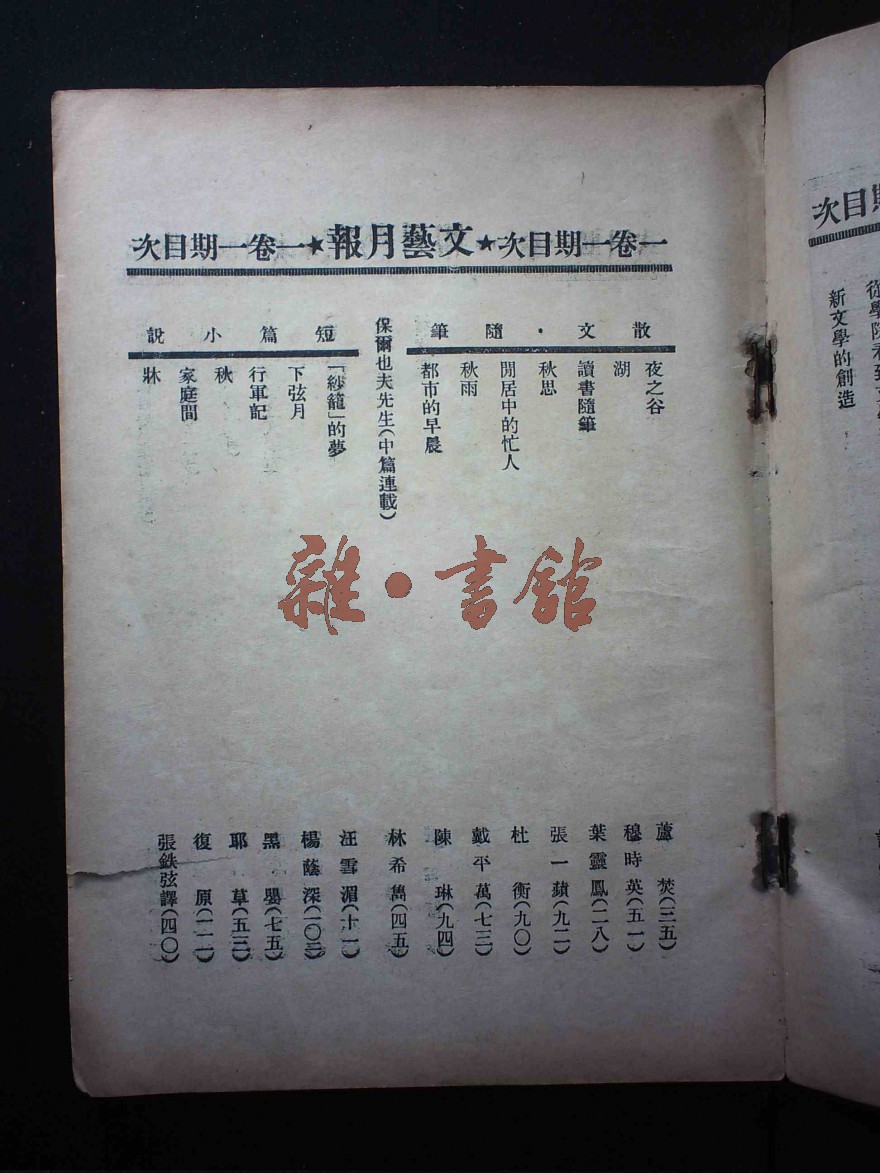 一卷一期目次★文藝月報★一卷一期目次
散文・隨筆
夜之谷 蘆焚(三五)
湖 穆時英(五一)
讀書隨筆 葉靈鳳(二八)
秋思 張一蘋(九二)
閒居中的忙人 杜衡(九〇)
秋雨 戴平萬(七三)
都市的早晨 陳琳(九四)
保爾也夫先生(中篇連載) 林希雋(四五)
短篇小說
「紗籠」的夢 汪雪湄(十一)
下弦月 楊蔭深(一〇三)
行軍記 黑嬰(七五)
秋 耶草(五三)
家庭間 復原(一一一)
牀 張鉄弦譯(四〇)
雜・書館
期目次
新文學的創造